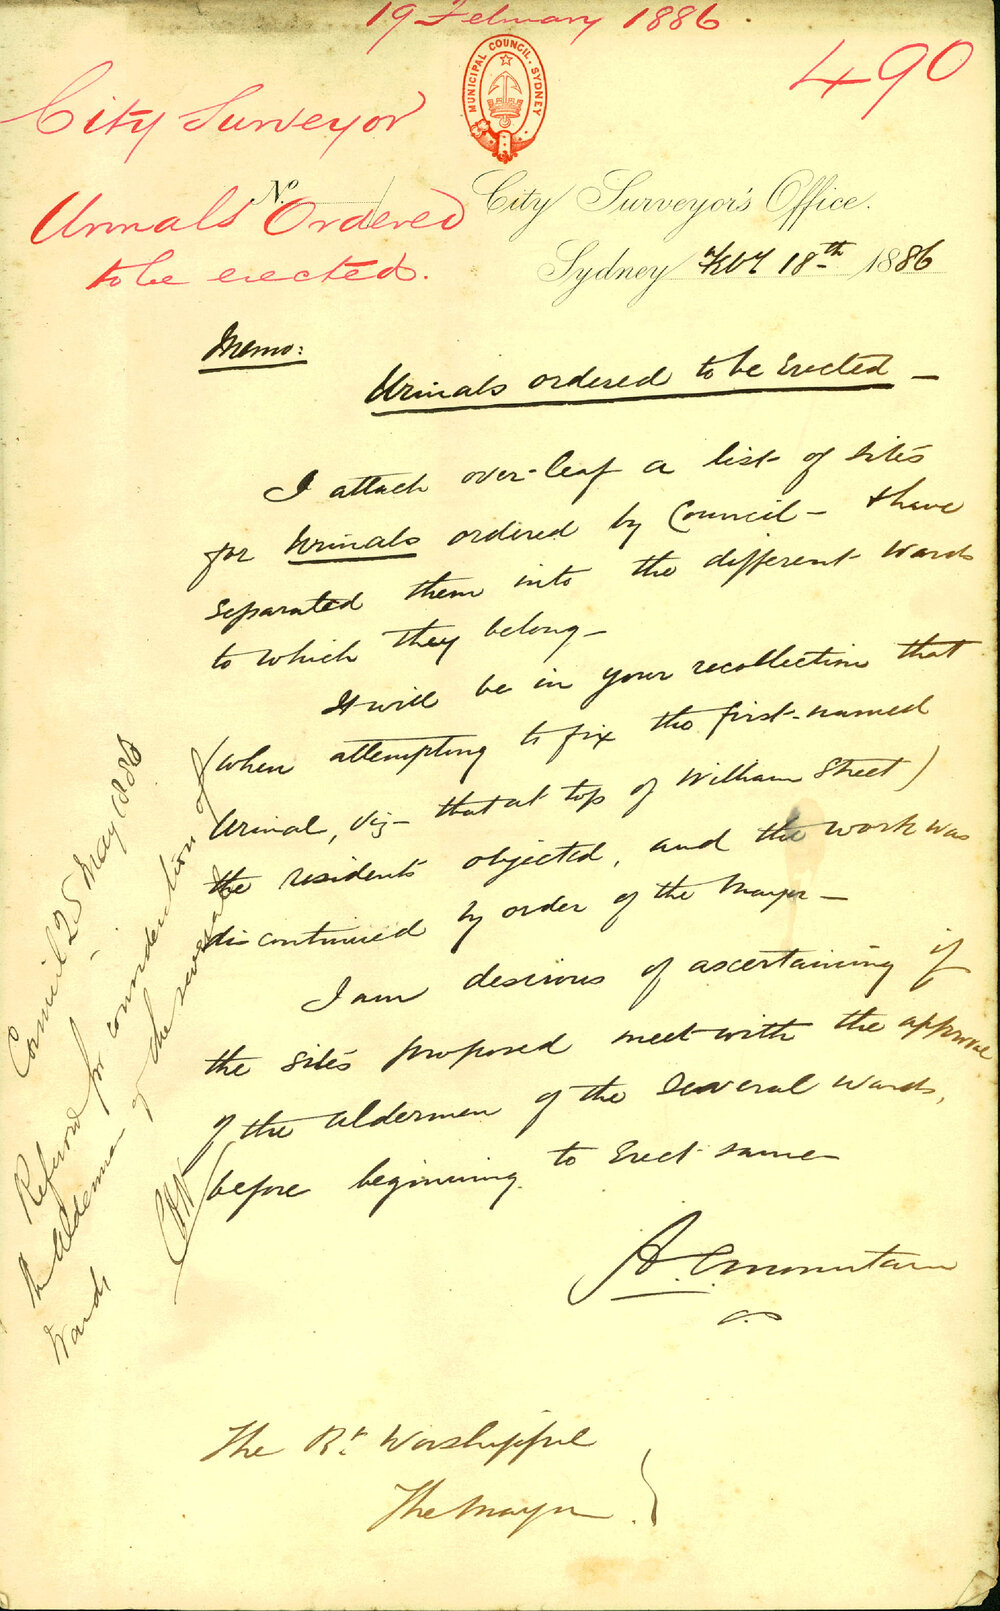 19 February 1886.
490
City Surveyor
MUNICIPAL COUNCIL. SYDNEY
No.
Urinals Ordered
to be erected.
City Surveyor's Office.
Sydney Feby 18th 1886
Memo:
Urinals ordered to be Erected –
I attach over-leaf a list of sites
for Urinals ordered by Council – & have
separated them into the different wards
to which they belong –
It will be in your recollection that
(when attempting to fix the first-named
Urinal, viz – that at top of William Street)
the residents objected, and the work was
discontinued by order of the Mayor –
I am desirous of ascertaining if
the sites proposed meet with the approval
of the Aldermen of the several wards,
before beginning to Erect same –
A. C. Mountain
C.S.
The Rt. Worshipful
The Mayor.
Council 25 May 1886
Referred for consideration of
the Aldermen of the several
Wards